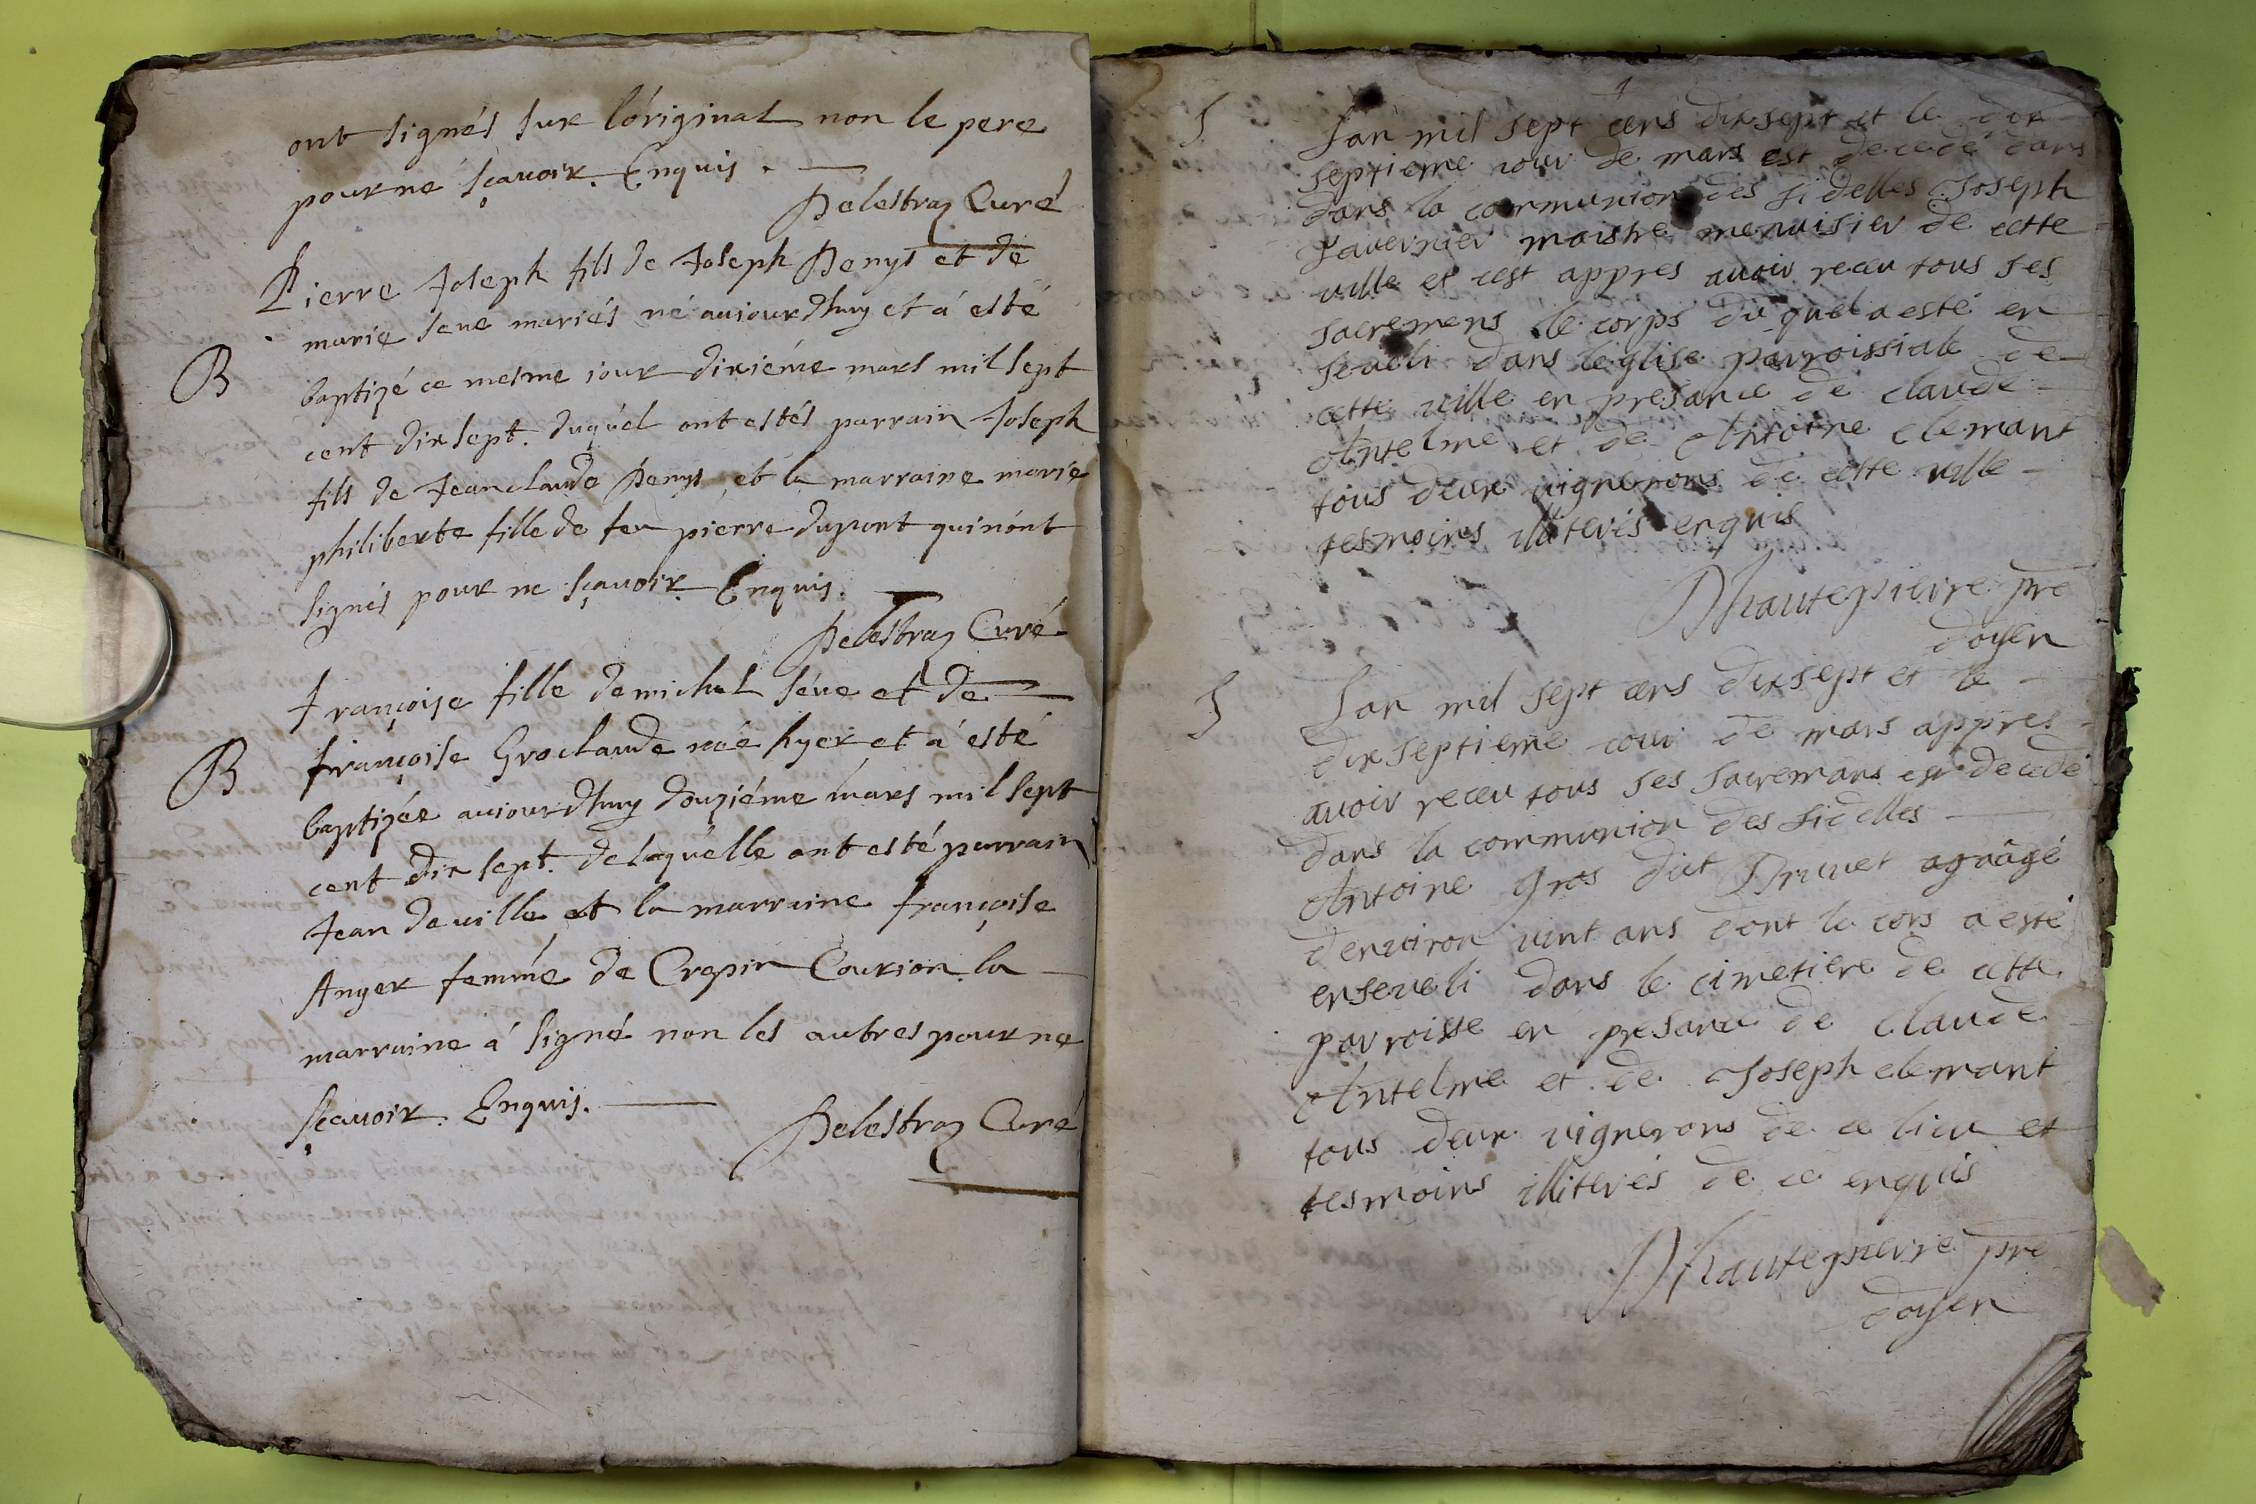 ont signés sur l'original non le pere
pour ne sçavoir. Enquis.
Delestraz Curé
Pierre Joseph fils de Joseph Denys et de
marie seve mariés né auiourdhuy et á esté
B
baptizé ce mesme iour dixiéme mars mil sept
cent dix sept. duquél ont estés parrain Joseph
fils de Jeanclaude Denys et la marraine marie
philiberte fille de feu pierre dupont qui nónt
signés pour ne sçavoir Enquis.
Delestraz Curé
françoise fille de michel séve et de
françoise Groclaude née hyer et á esté
B
baptizée auiourdhuy douziéme mars mil sept
cent dix sept. de laquélle ont esté parrain
Jean deville et la marraine françoise
Anger femme de Crepin Courion la
marraine á signé non les autres pour ne
sçavoir. Enquis.
Delestraz Curé
S
Lan mil sept cens dixsept et le dix
septieme iour de mars est decedé dans
dans la communion des fidelles Joseph
Tavernier maistre menuisier de cette
ville et cest appres avoir receu tous ses
sacremens le corps du quel a esté en
seveli dans leglise parroissiale de
cette ville en presance de claude
Antelme et de Antoine clemant
tous deux vignerons de cette ville
tesmoins illiterés enquis
Dhautepierre pre
doyen
S
Lan mil sept cens dixsept et le
dixseptieme iour de mars appres
avoir receu tous ses sacremans est decedé
dans la communion des fidelles
Antoine gros dit Brunet agaâgé
denviron vint ans dont le cors a esté
enseveli dans le cimetiere de cette
parroisse en presance de claude
Antelme et de Joseph clemant
tous deux vignerons de ce lieu et
tesmoins illiterés de ce enquis
Dhautepierre pre
doyen